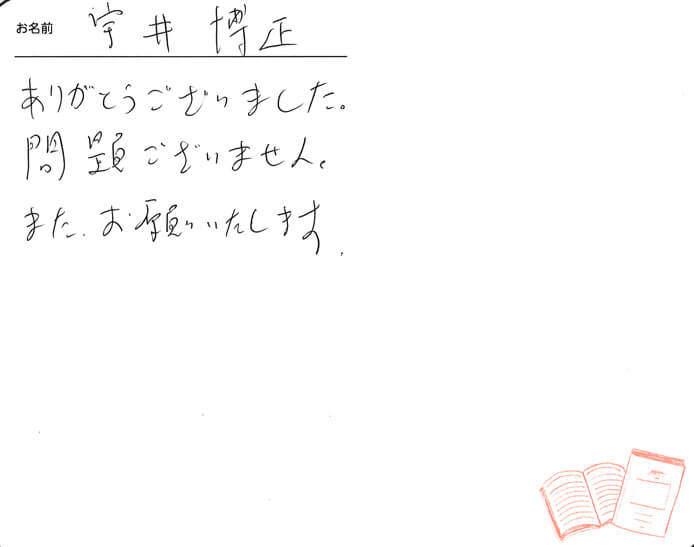 お名前 宇井 博正
ありがとうございました。
問題ございません。
また、お願いいたします.